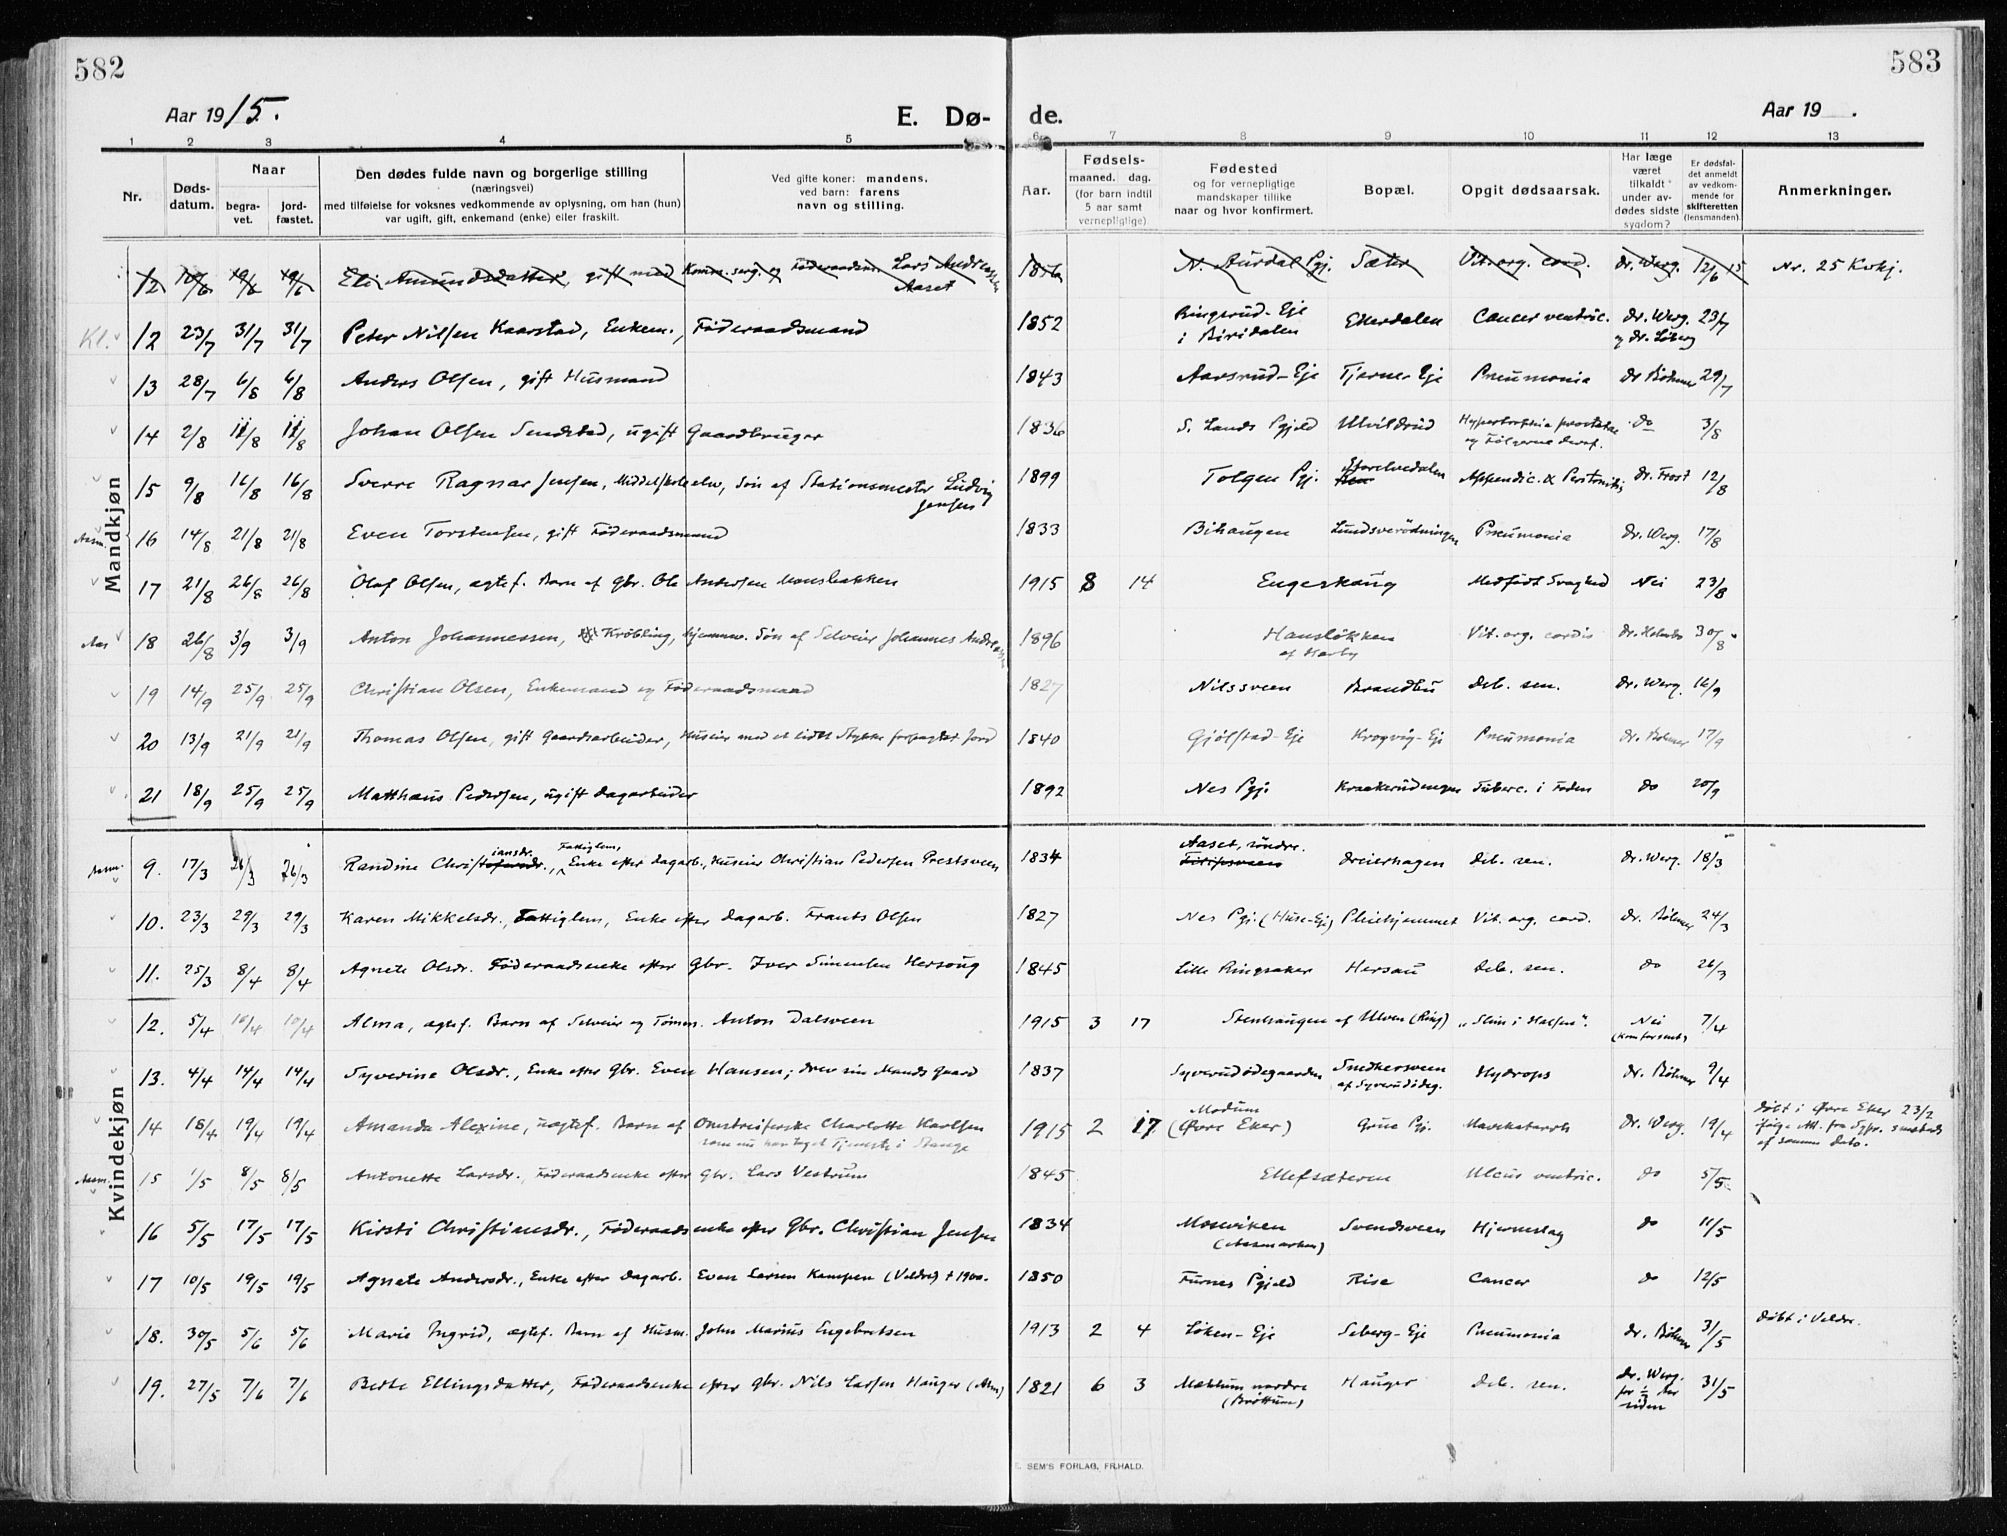 582
583
Aar 1915.
E. Dø-
de.
Aar 19 .
1 2 3 4 5 6 7 7 8 9 10 11 12 13
Nr.
Døds-
datum.
Naar
begra-
vet.
jord-
fæstet.
Den dødes fulde navn og borgerlige stilling
(næringsvei)
med tilføielse for voksnes vedkommende av oplysning, om han (hun)
var ugift, gift, enkemand (enke) eller fraskilt.
Ved gifte koner: mandens.
ved barn: farens
navn og stilling.
Aar.
Fødsels-
maaned. dag.
(for barn indtil
5 aar samt
vernepligtige)
Fødested
og for vernepligtige
mandskaper tillike
naar og hvor konfirmert.
Bopæl.
Opgit dødsaarsak.
Har læge
været
tilkaldt
under av-
dødes sidste
sygdom?
Er dødsfal-
det anmeldt
av vedkom-
mende for
skifteretten
(lensmanden).
Anmerkninger.
Mandkjøn
12 19/6 19/6 Eli Amundsdatter, gift med Komm.serg. og Føderaadsm. Lars Andreassen Aaset 1856 N. Aurdal Pgj. Sæter Vit. org. cord. dr. Werg. 12/6 15 Nr. 25 Kvkj.
Kl. 12 23/7 31/7 31/7 Peter Nilsen Kaarstad, Enkem., Føderaadsmand 1852 Ringerud-Eje i Biridalen Ekerdalen Cancer ventric. dr. Werg. og dr. Løberg 23/7
13 28/7 6/8 6/8 Anders Olsen, gift Husmand 1843 Aarsrud-Eje Tjerne-Eje Pneumonia dr Bøhmer 29/7
14 2/8 11/8 11/8 Johan Olsen Sendstad, ugift Gaardbruger 1836 S. Lands Pgjeld Ulvildrud Hypertrofia prostatae og Følgerne deraf. do 3/8
15 9/8 16/8 16/8 Sverre Ragnar Jensen, Middelskoleelev, Søn af Stationsmester Ludvig Jensen 1899 Tolgen Pgj. Storelvedalen Appendic. & Peritonitis dr. Frost 12/8
Asm. 16 14/8 21/8 21/8 Even Torstensen, gift Føderaadsmand 1833 Bihaugen Lundsverødningen Pneumonia dr. Werg. 17/8
17 21/8 26/8 26/8 Olaf Olsen, ægtef. Barn af Gbr. Ole Andersen Monsbakken 1915 8 14 Engeskaug Medfødt Svaghed Nei 23/8
Aas 18 26/8 3/9 3/9 Anton Johannessen, Krøbling, hjemmev. Søn af Selveier Johannes Andreassen 1896 Hansløkken af Harby Vit. org. cordis dr. Holmbo 30/8
19 14/9 25/9 25/9 Christian Olsen, Enkemand og Føderaadsmand 1827 Nilssveen Brandbu Deb. sen. dr. Werg. 16/9
20 13/9 21/9 21/9 Thomas Olsen, gift Gaardsarbeider, Huseier med et lidet Stykke forpagtet Jord 1840 Gjølstad-Eje Krogvig-Eje Pneumonia dr. Bøhmer 17/9
21 18/9 25/9 25/9 Matthæus Pedersen, ugift Dagarbeider 1892 Nes Pgj. Kraakerudengen Tuberc. i Foden do 20/9
Kvindekjøn
Asm. 9. 17/3 26/3 26/3 Randine Christiansdr., Fattiglem, Enke efter Dagarb., Huseier Christian Pedersen Prestsveen 1834 Aaset, søndre. Dreierhagen Deb. sen. dr. Werg. 18/3
10. 23/3 29/3 29/3 Karen Mikkelsdr., Fattiglem, Enke efter Dagarb. Frants Olsen 1827 Nes Pgj. (Huse-Eje) Pleiehjemmet Vit. org. cord. dr. Bøhmer 24/3
11. 25/3 8/4 8/4 Agnete Olsdr. Føderaadsenke efter Gbr. Iver Simensen Hersoug 1845 Lille Ringsaker Hersau Deb. sen. do 26/3
12. 5/4 10/4 10/4 Alma, ægtef. Barn af Selveier og Tømm. Anton Dalsveen 1915 3 17 Stenhaugen af Ulven (Ring) „Slim i Halsen“. Nei (Kom for sent) 7/4
13. 4/4 14/4 14/4 Syverine Olsdr., Enke efter Gbr. Even Hansen; drev sin Mands Gaard 1837 Syverudødegaarden Snedkersveen af Syverudødeg. Hydrops dr. Bøhmer 9/4
14 18/4 19/4 19/4 Amanda Alexine, uægtef. Barn af Omstreiferske Charlotte Karlsen som nu har taget Tjeneste i Stange 1915 2 17 Modum (Øvre Eker) Grue Pgj. Mavekatarrh Dr. Werg. 19/4 Døbt i Øvre Eker 23/2 ifølge Att. fra Sgpr. smsteds af samme Dato.
Asm. 15 1/5 8/5 8/5 Antonette Larsdr., Føderaadsenke efter Gbr. Lars Vestrum 1845 Ellefsæteren Ulcus ventric. do 5/5
16 5/5 17/5 17/5 Kirsti Christiansdr., Føderaadsenke efter Gbr. Christian Jensen 1834 Moseviken (Aasmarken) Svendsveen Hjerneslag do 11/5
17 10/5 19/5 19/5 Agnete Andersdr., Enke efter Dagarb. Even Larsen Kampen (Veldre) † 1900. 1850 Furnes Pgjeld Rise Cancer do 12/5
18. 30/5 5/6 5/6 Marie Ingrid, ægtef. Barn af Husm. John Marius Engebretsen 1913 2 4 Løken-Eje Seberg-Eje Pneumonia dr. Bøhmer 31/5 Døbt i Veldre.
19. 27/5 7/6 7/6 Berte Ellingsdatter, Føderaadsenke efter Gbr. Nils Larsen Hauger (Asm) 1821 6 3 Mæhlum nordre (Brøttum) Hauger Deb. sen. dr. Werg. for ½ Aar siden 31/5
SEM'S FORLAG, FR.HALD.